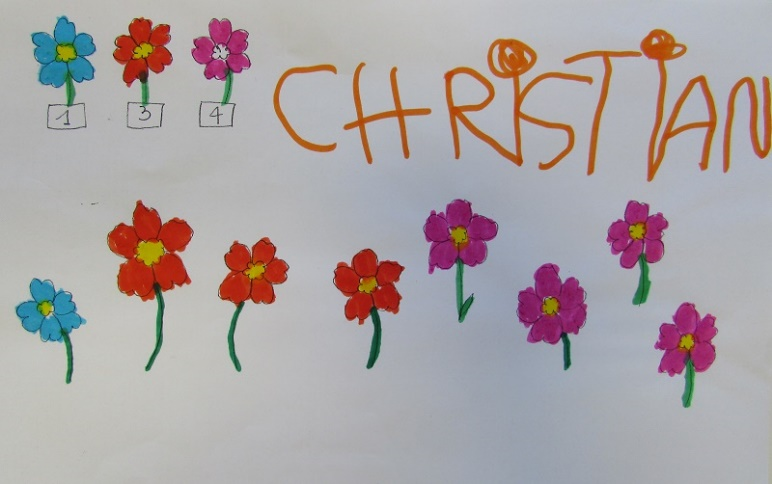 1 3 4
CHRiSTiAN